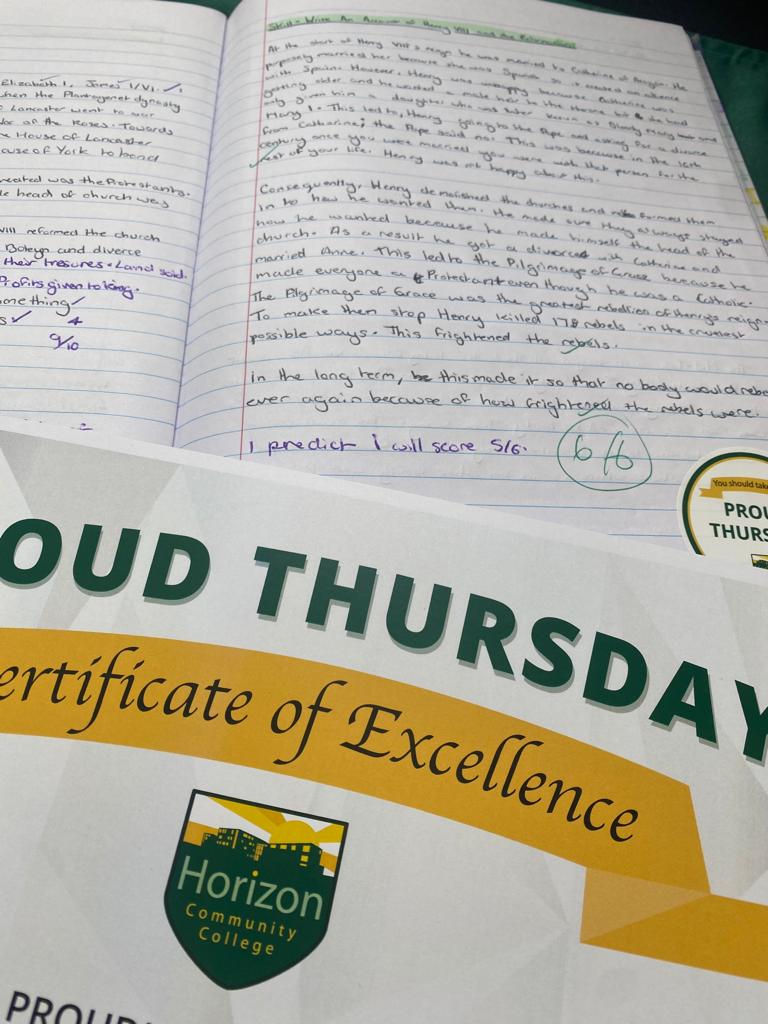 Elizabeth I, James I/VI.
when the Plantagenet dynasty
Lancaster went to war
of the Roses. Towards
House of Lancaster
House of York to bond
created was the Protestants.
head of church way
will reformed the church
Boleyn and divorce
their tresures. Land sold.
Profits given to king.
something
4
9/10
Skill - Write An Account of Henry VIII and the Reformation
At the start of Henry VIII's reign he was married to Catherine of Aragon. He
purposely married her because she was Spanish so it created an alliance
with Spain. However, Henry was unhappy because Catherine was
getting older and he wanted a male heir to the throne but she had
only given him a daughter who was later known as Bloody Mary
Mary 1. This led to Henry going to the Pope and asking for a divorce
from Catherine, the Pope said no. This was because in the 16th
century once you were married you were with that person for the
rest of your life. Henry was not happy about this.
Consequently, Henry demolished the churches and formed them
in to how he wanted them. He made sure they always stayed
how he wanted because he made himself the head of the
church. As a result he got a divorced with Catherine and
married Anne. This led to the Pilgrimage of Grace because he
made everyone a Protestant even though he was a Catholic.
The Pilgrimage of Grace was the greatest rebellion of Henrys reign.
To make them stop Henry killed 178 rebels in the cruelest
possible ways. This frightened the rebels.
In the long term, this made it so that no body would rebel
ever again because of how frightened the rebels were.
I predict i will score 5/6.
6/6
You should take
PROU
THURS
OUD THURSDAY
ertificate of Excellence
Horizon
Community
College
PROUD